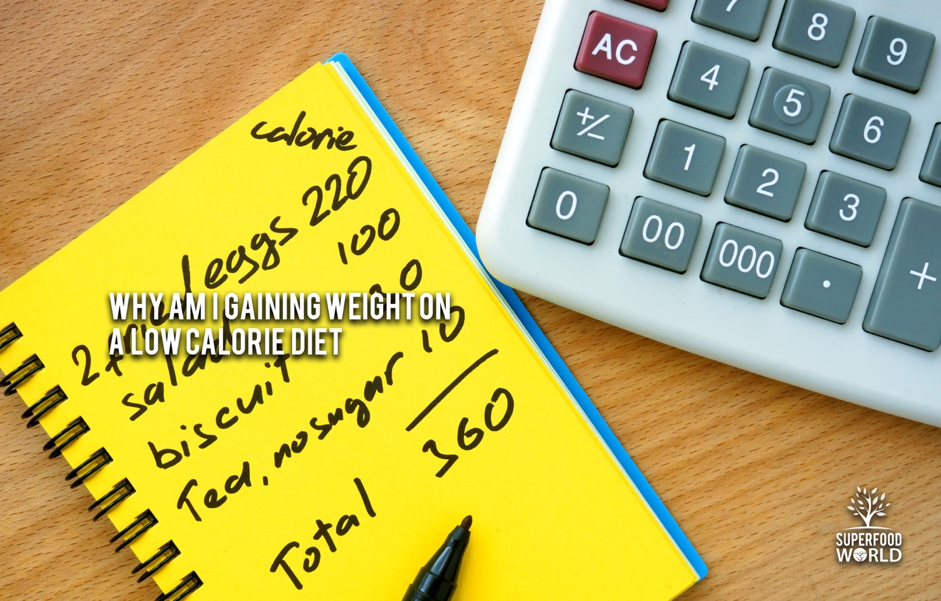 calorie
2 eggs 220
salad 100
biscuit 0
Tea, no sugar 10
Total 360
WHY AM I GAINING WEIGHT ON
A LOW CALORIE DIET
AC
7
8
9
4
5
6
+/−
1
2
3
0
00
000
.
+
SUPERFOOD
WORLD